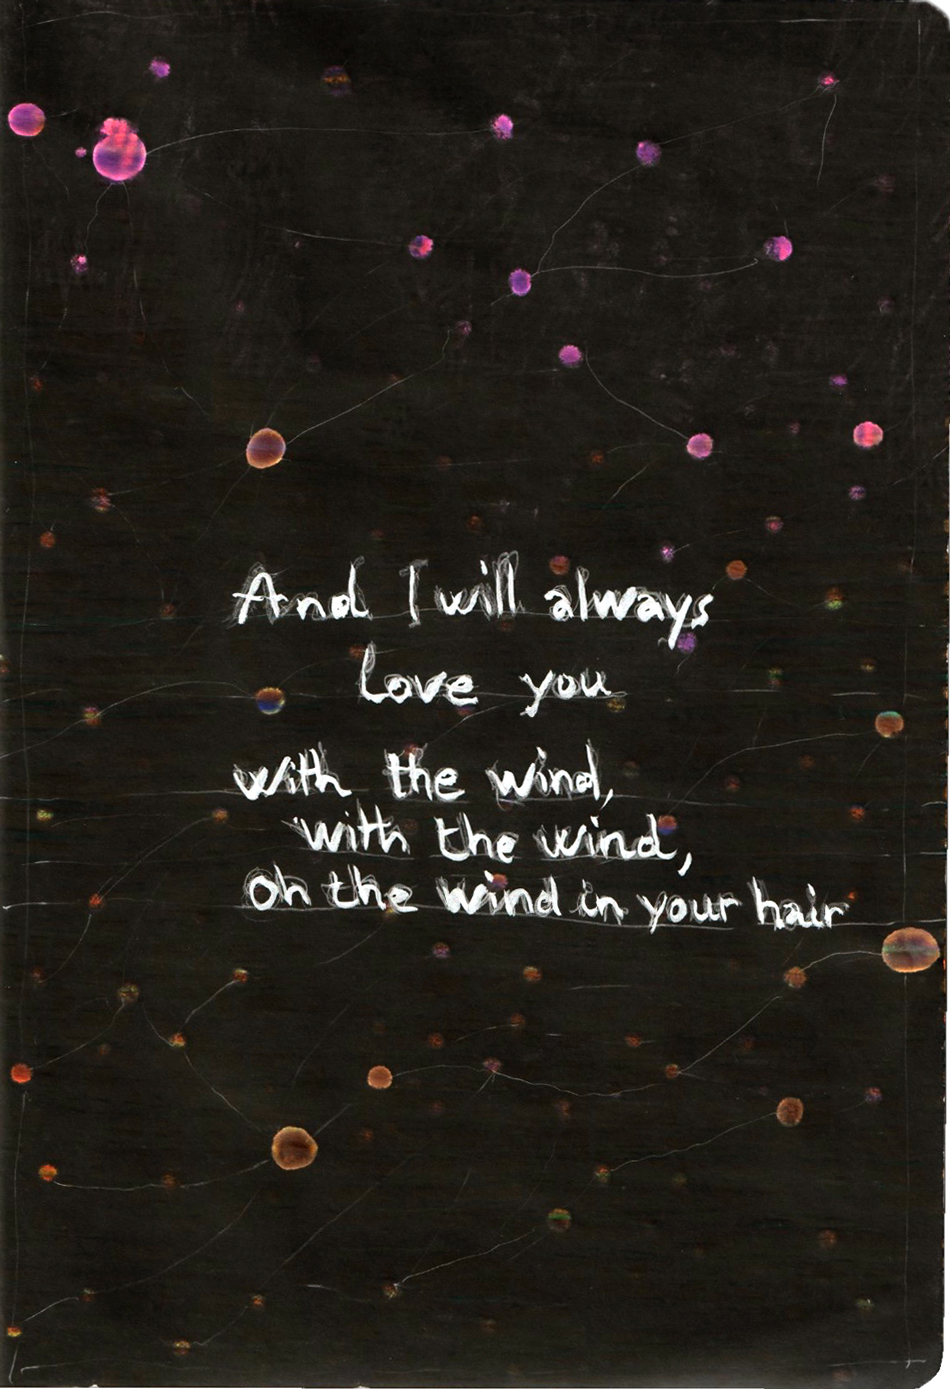 And I will always
love you
with the wind,
with the wind,
oh the wind in your hair